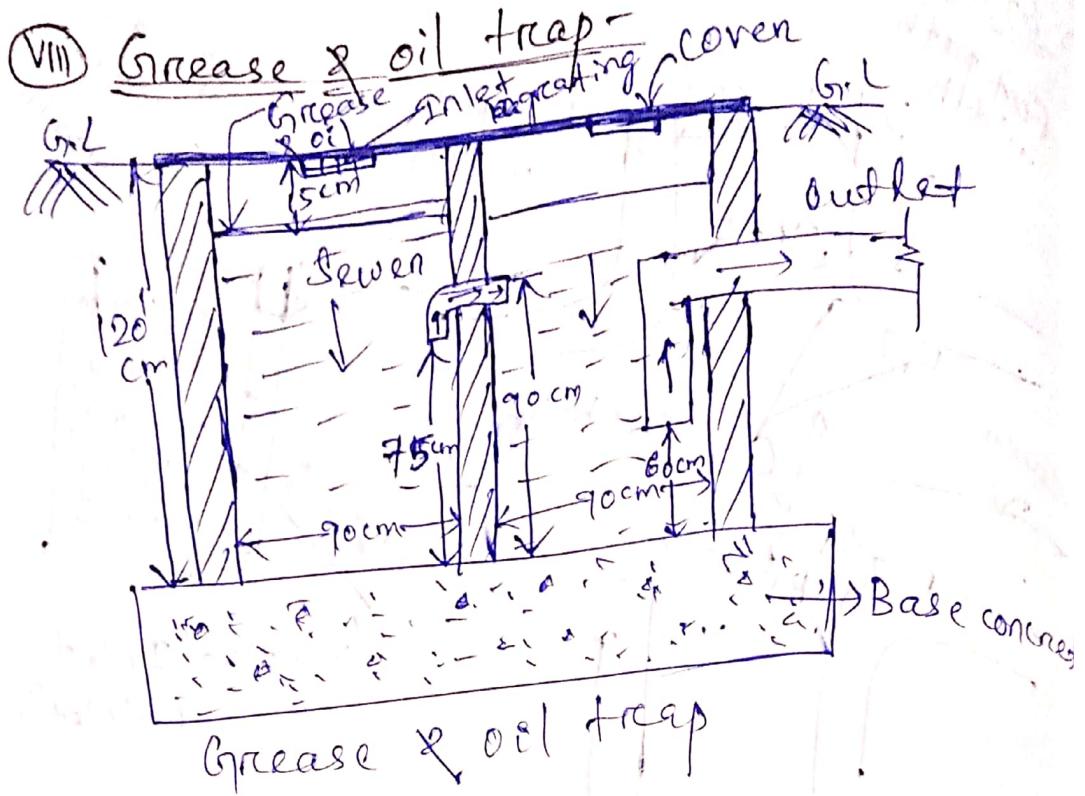 VIII Grease & oil trap-
cover
Grease & oil
Inlet
grating
G.L
G.L
15cm
outlet
Sewer
120 cm
90cm
75cm
60cm
90cm
90cm
Base concre
Grease & oil trap